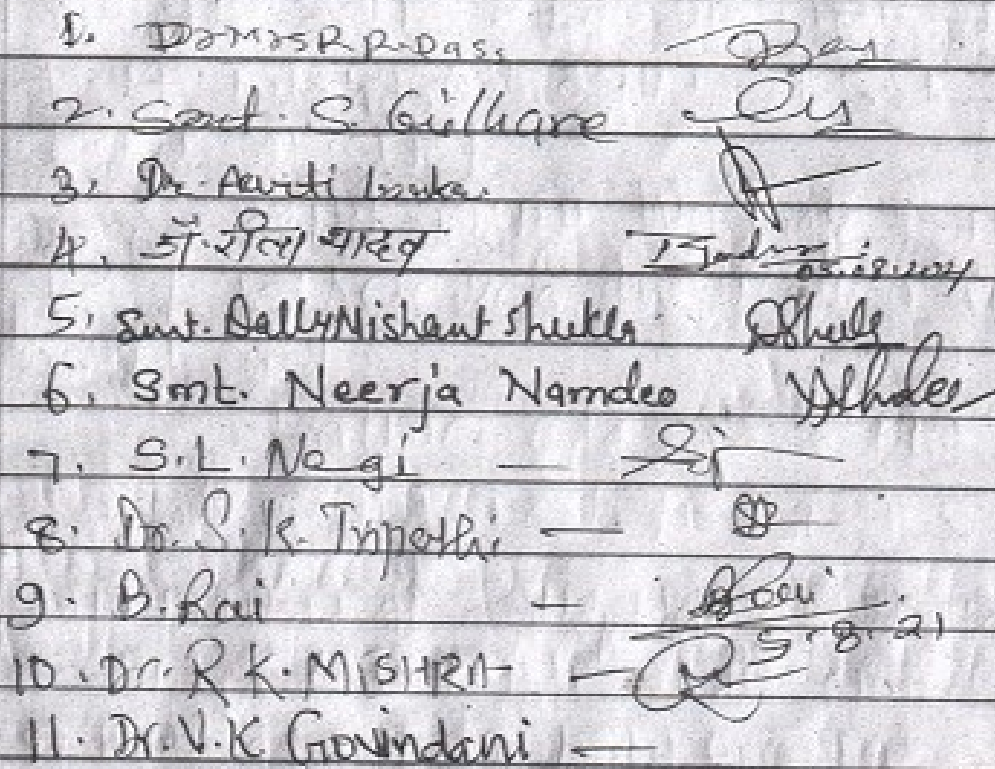 1. Dr Mrs R.R. Das.
2. Smt. S. Gilhare
3. Dr. Aarti
4. डॉ. रीता यादव 05.08.2021
5. Smt. Dally Nishant Shukla DShukla
6. Smt. Neerja Namdeo
7. S.L. Nagi —
8. Dr. S.K. Tripathi —
9. B. Rai — BRai
5.8.21
10. Dr. R K. MISHRA —
11. Dr. V.K Govindani —